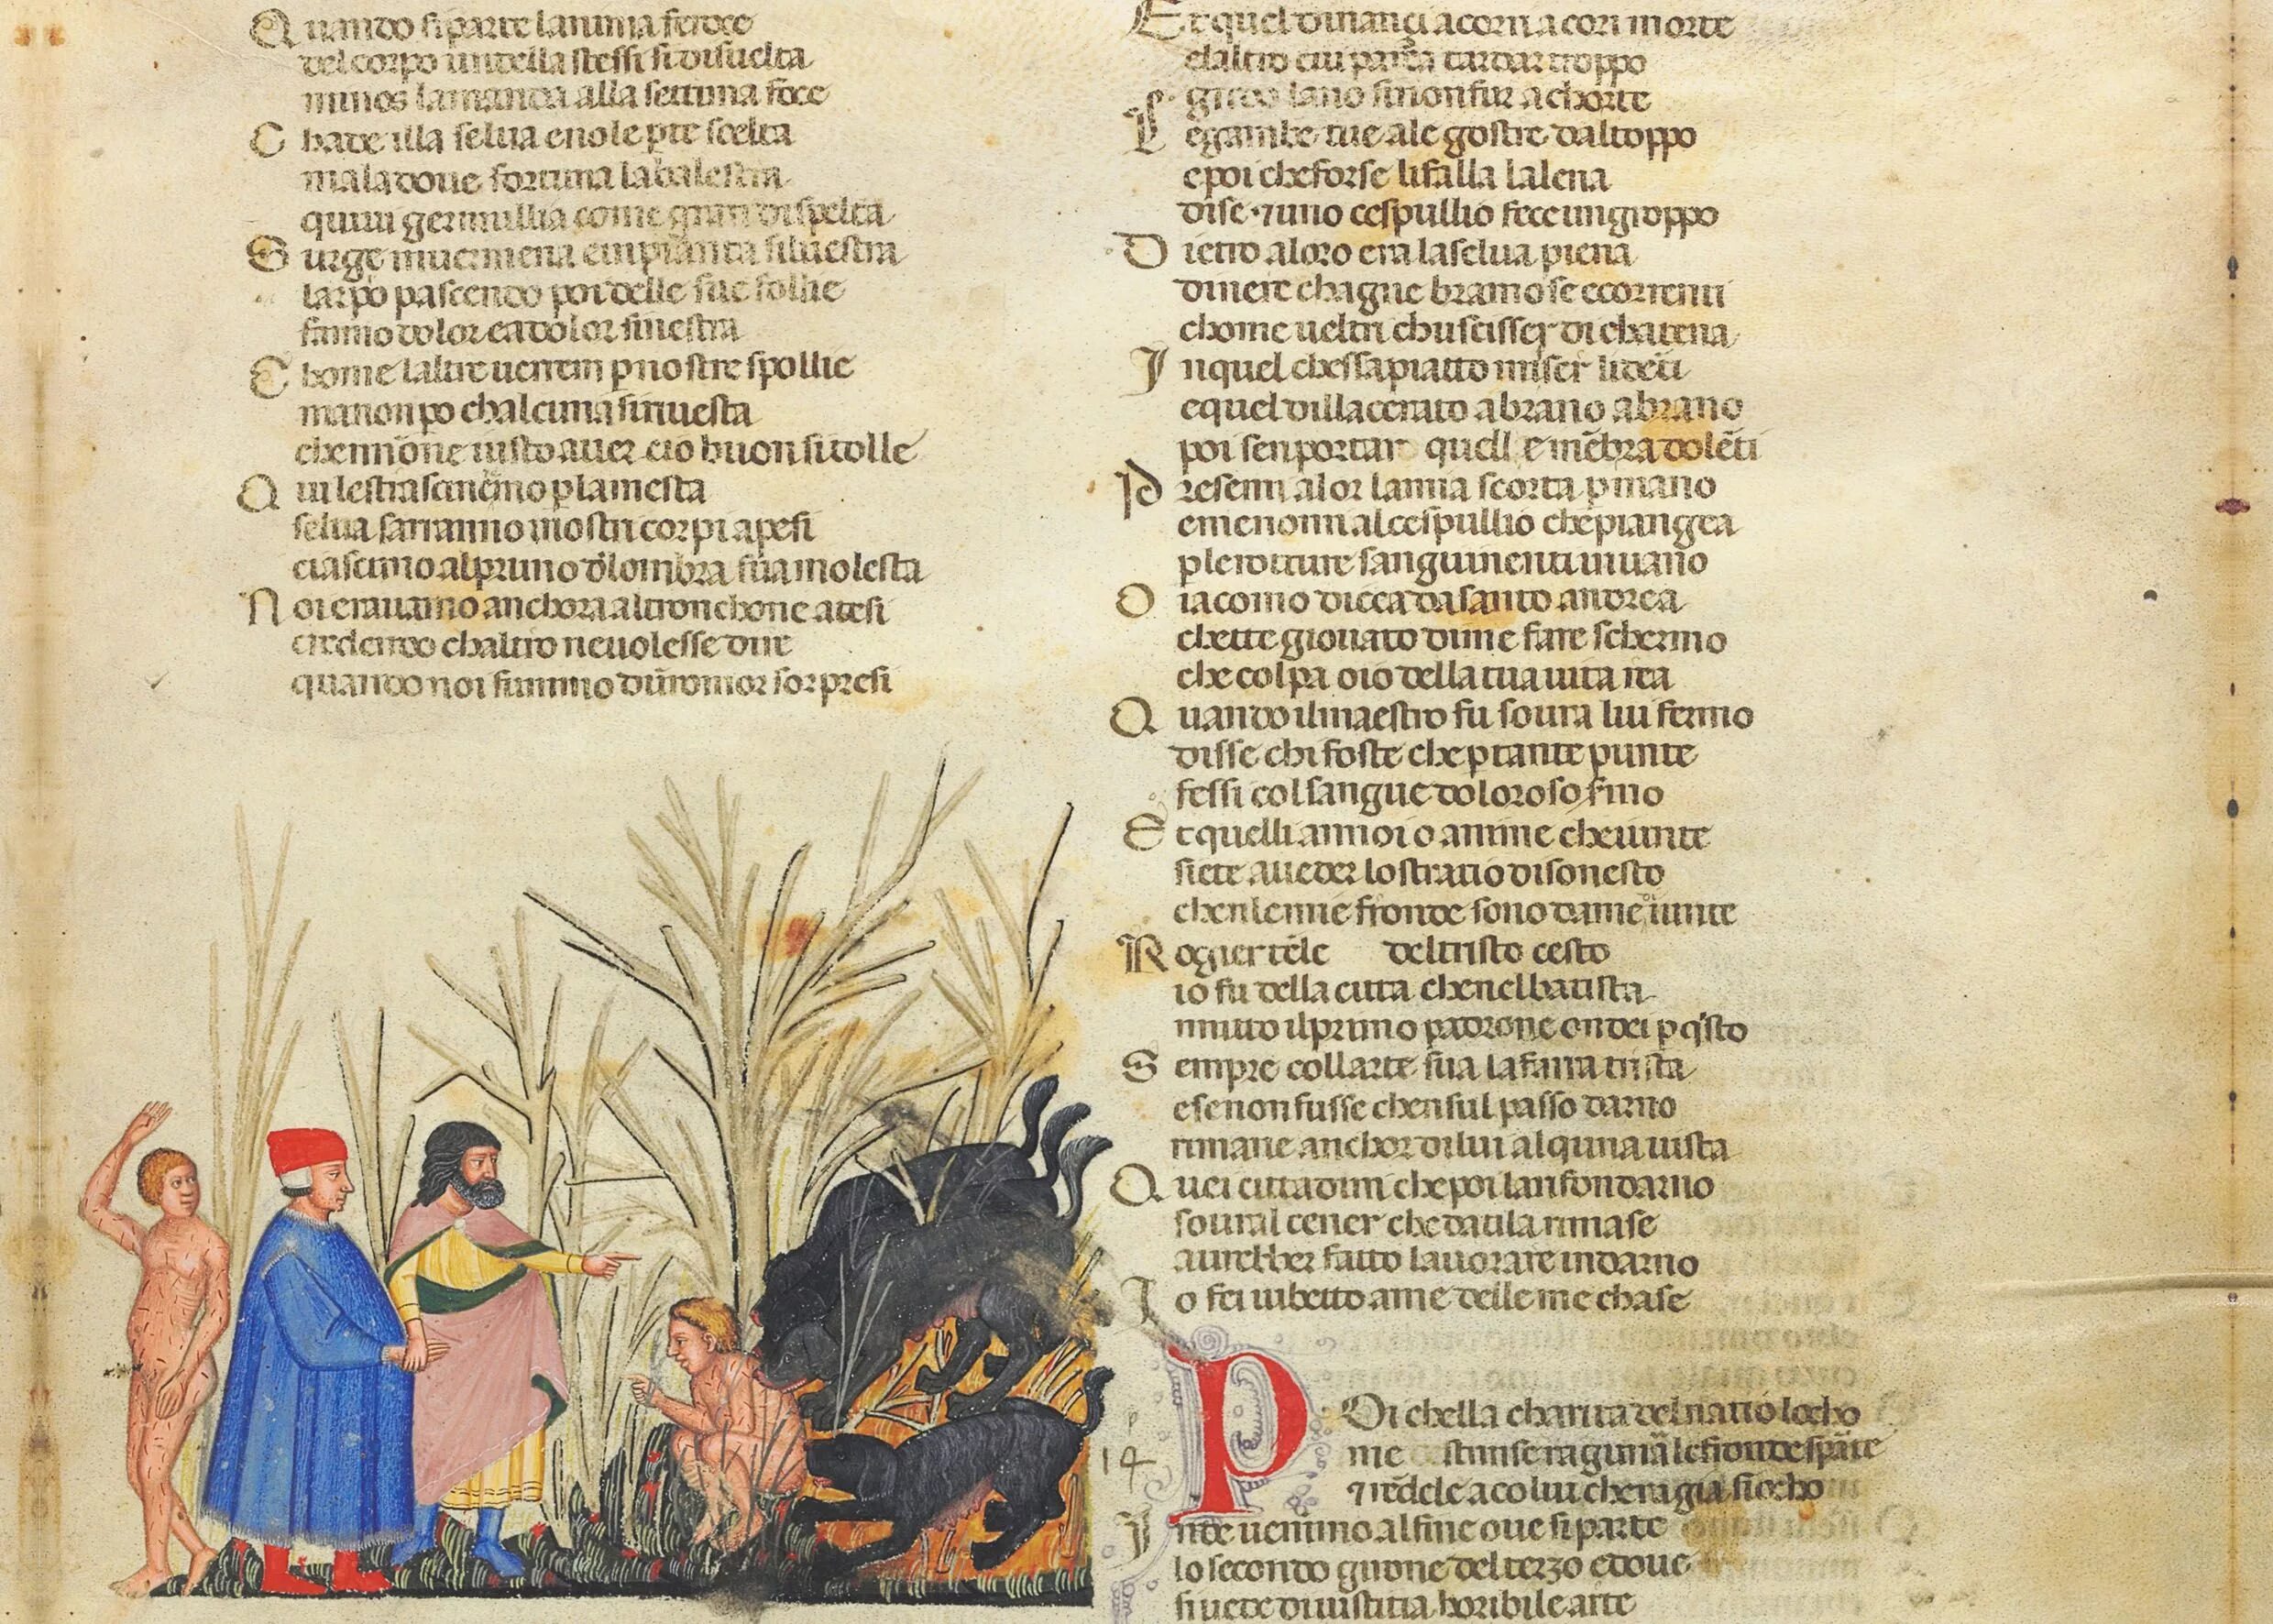 Quando si parte lanima feroce
del corpo undella stessi si disuelta
minos lamanda alla settima foce
Chade illa selua e nole pte scelta
mala doue fortuna la balestra
quiui germullia come gran dispelta
Surge in uermena einpianta siluestra
larpo pascendo poi delle sue follie
fanno dolor ea dolor finestra
Chome laltre uerrem p nostre spollie
ma non po chalcuna sinuesta
chennone iusto auer cio huon si tolle
Qui lestrascinemo p la mesta
selua saranno inostri corpi apesi
ciascuno alpruno dlombra sua molesta
Noi erauamo anchora altronchone atesi
credendo chaltro ne uolesse dire
quando noi fummo dũ romor sorpresi
Et quel dinanci acorri acori morte
elaltro cui parea tardar troppo
gridO lano si non fur achorte
Le gambe tue ale gostre dal toppo
e poi che forse li falla lalena
di se ⁊ uno cespullio fece un groppo
Dietro a loro era la selua piena
di nere chagne bramose e correnti
chome ueltri chuscisser di chatena
In quel chessapiatto miser li deti
e quel dillacerato a brano a brano
poi sen portar quell e mẽbra dolẽti
Presemi alor la mia scorta p mano
e menomi al cespullio che piangea
p le rotture sanguinenti in uano
O iacomo dicea da santo andrea
chette giouato di me fare schermo
che colpa o io della tua uita rea
Quando il maestro fu soura lui fermo
disse chi foste che p tante punte
fessi col sangue doloroso smo
Et quelli annoi o anime che iunte
siete a ueder lo stratio disonesto
chenle mie fronde sono da me iunte
Rogliertele del tristo cesto
io fu della citta chenel batista
muto il primo padrone ondei p q̃sto
Sempre collarte sua la fara trista
e se non fusse chensul passo darno
rimane anchor di lui alquna uista
Quei cittadini che poi lanfondarno
soural cener che datila rimase
aurebber fatto lauorare indarno
Io fei iubetto a me delle me chase
14
Poi chella charita del natio locho
me strinse ragunai le fronde sparte
⁊ rẽdele a colui chera gia fiocho
Inde uenimo al fine oue si parte
lo secondo girone del terzo e doue
si uede di iustitia horibile arte